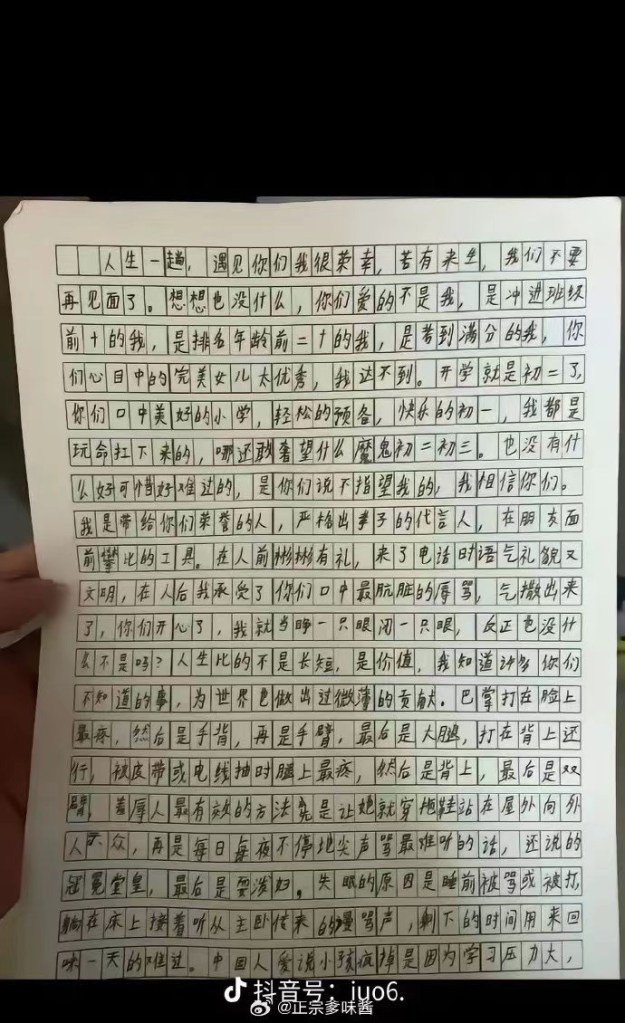 人生一趟，遇见你们我很荣幸，若有来生，我们不要
再见面了。想想也没什么，你们爱的不是我，是冲进班级
前十的我，是排名年龄前二十的我，是考到满分的我，你
们心目中的完美女儿太优秀，我达不到。开学就是初二了，
你们口中美好的小学，轻松的预备，快乐的初一，我都是
玩命扛下来的，哪还敢奢望什么魔鬼初二初三。也没有什
么好可惜好难过的，是你们说不指望我的，我相信你们。
我是带给你们荣誉的人，严格出孝子的代言人，在朋友面
前攀比的工具。在人前彬彬有礼，来了电话时语气礼貌又
文明，在人后我承受了你们口中最肮脏的辱骂，气撒出来
了，你们开心了，我就当睁一只眼闭一只眼，反正也没什
么不是吗？人生比的不是长短，是价值，我知道许多你们
不知道的事，为世界也做出过微薄的贡献。巴掌打在脸上
最疼，然后是手背，再是手臂，最后是大腿，打在背上还
行，被皮带或电线抽时腿上最疼，然后是背上，最后是双
臂。羞辱人最有效的方法先是让她就穿拖鞋站在屋外向外
人示众，再是每日每夜不停地尖声骂最难听的话，还说的
冠冕堂皇，最后是耍泼妇。失眠的原因是睡前被骂或被打，
躺在床上接着听从主卧传来的谩骂声，剩下的时间用来回
味一天的难过。中国人爱说小孩疯掉是因为学习压力大，
抖音号：juo6.
@正宗爹味酱